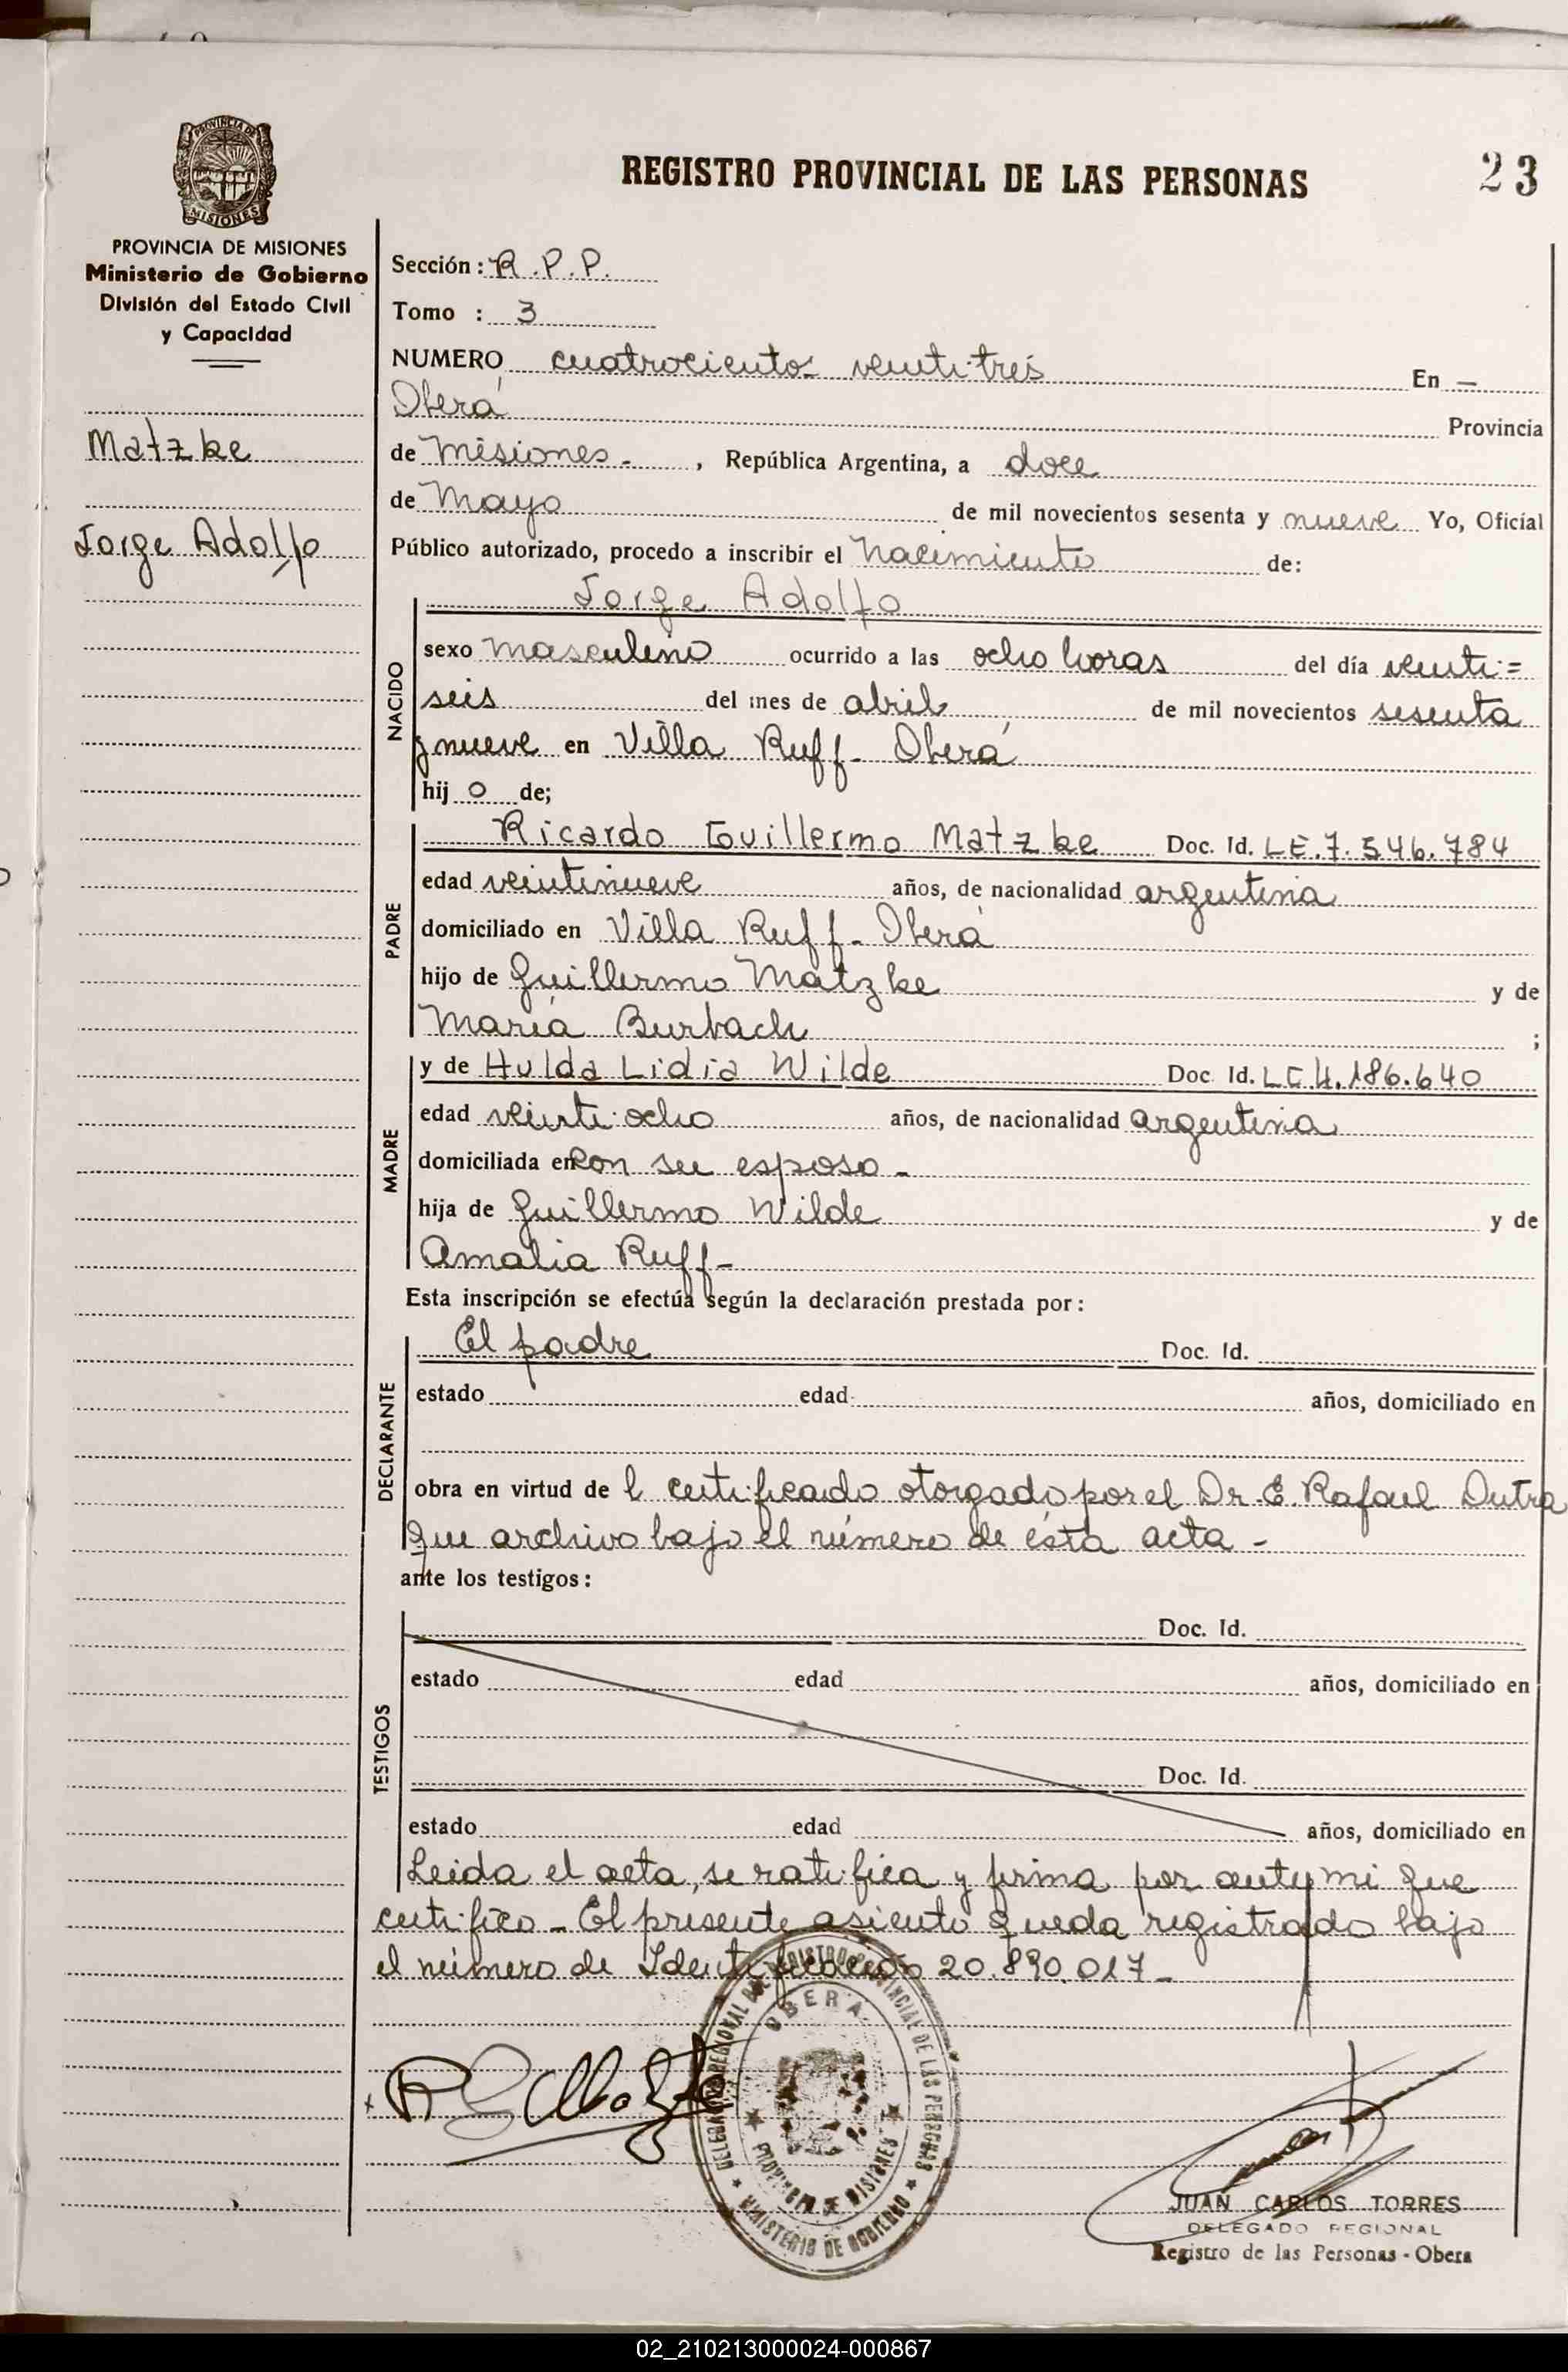 REGISTRO PROVINCIAL DE LAS PERSONAS
23
PROVINCIA DE MISIONES
PROVINCIA DE MISIONES
Ministerio de Gobierno
División del Estado Civil
y Capacidad
Matzke
Jorge Adolfo
Sección: R.P.P.
Tomo : 3
NUMERO cuatrocientos veintitrés En —
Oberá Provincia
de Misiones - , República Argentina, a doce
de Mayo de mil novecientos sesenta y nueve Yo, Oficial
Público autorizado, procedo a inscribir el Nacimiento de:
NACIDO
Jorge Adolfo
sexo masculino ocurrido a las ocho horas del día veinti=
seis del mes de abril de mil novecientos sesenta
y nueve en Villa Ruff - Oberá
hij o de;
PADRE
Ricardo Guillermo Matzke Doc. Id. LE.7.546.784
edad veintinueve años, de nacionalidad argentina
domiciliado en Villa Ruff - Oberá
hijo de Guillermo Matzke y de
María Burbach ;
MADRE
y de Hulda Lidia Wilde Doc. Id. LC 4.186.640
edad veinti ocho años, de nacionalidad argentina
domiciliada en con su esposo -
hija de Guillermo Wilde y de
Amalia Ruff -
Esta inscripción se efectúa según la declaración prestada por:
DECLARANTE
El padre Doc. Id.
estado edad años, domiciliado en
obra en virtud de l certificado otorgado por el Dr. E. Rafael Dutra
que archivo bajo el número de ésta acta -
ante los testigos:
TESTIGOS
Doc. Id.
estado edad años, domiciliado en
Doc. Id.
estado edad años, domiciliado en
Leida el acta, se ratifica y firma por ante mi que
certifico - El presente asiento queda registrado bajo
el número de Identificación 20.890.017 -
DELEGACION REGIONAL DEL REGISTRO PROVINCIAL DE LAS PERSONAS
OBERA
PROVINCIA DE MISIONES
MINISTERIO DE GOBIERNO
JUAN CARLOS TORRES
DELEGADO REGIONAL
Registro de las Personas - Obera
02_210213000024-000867